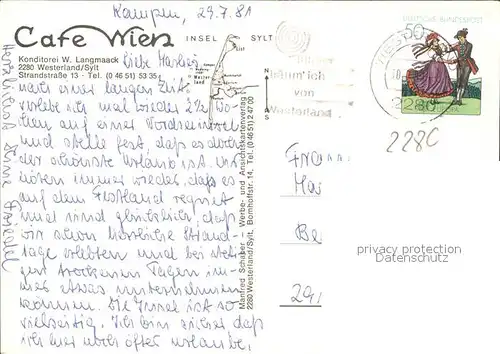 Kampen, 29.7.81
Cafe Wien
INSEL SYLT
Konditorei W. Langmaack
2280 Westerland/Sylt
Strandstraße 13 - Tel. (0 46 51) 53 35
List
Westerland
N
W
O
S
DEUTSCHE BUNDESPOST
50
träum' ich
von
Westerland
2280
2280
Liebe
nach einer langen Zeit
verlebe ich mal wieder 2 ½ Wo-
chen auf einer Nordseeinsel
und stelle fest, daß es doch
der schönste Urlaub ist. Wir
hören immer wieder, daß es
auf dem Festland regnet
und sind glücklich, daß
wir schon herrliche Strand-
tage erlebten und bei
trockenem Tagen im-
mer etwas unternehmen
können. Die Insel ist so
vielseitig. Ich bin sicher daß
ich hier noch öfter urlaube.
Herzlichst Deine
Manfred Schuber - Werbe- und Ansichtskartenverlag
2280 Westerland/Sylt, Bomhoffstr. 14, Tel. (0 46 51) 2 47 00
Frau
Be
privacy protection
Datenschutz